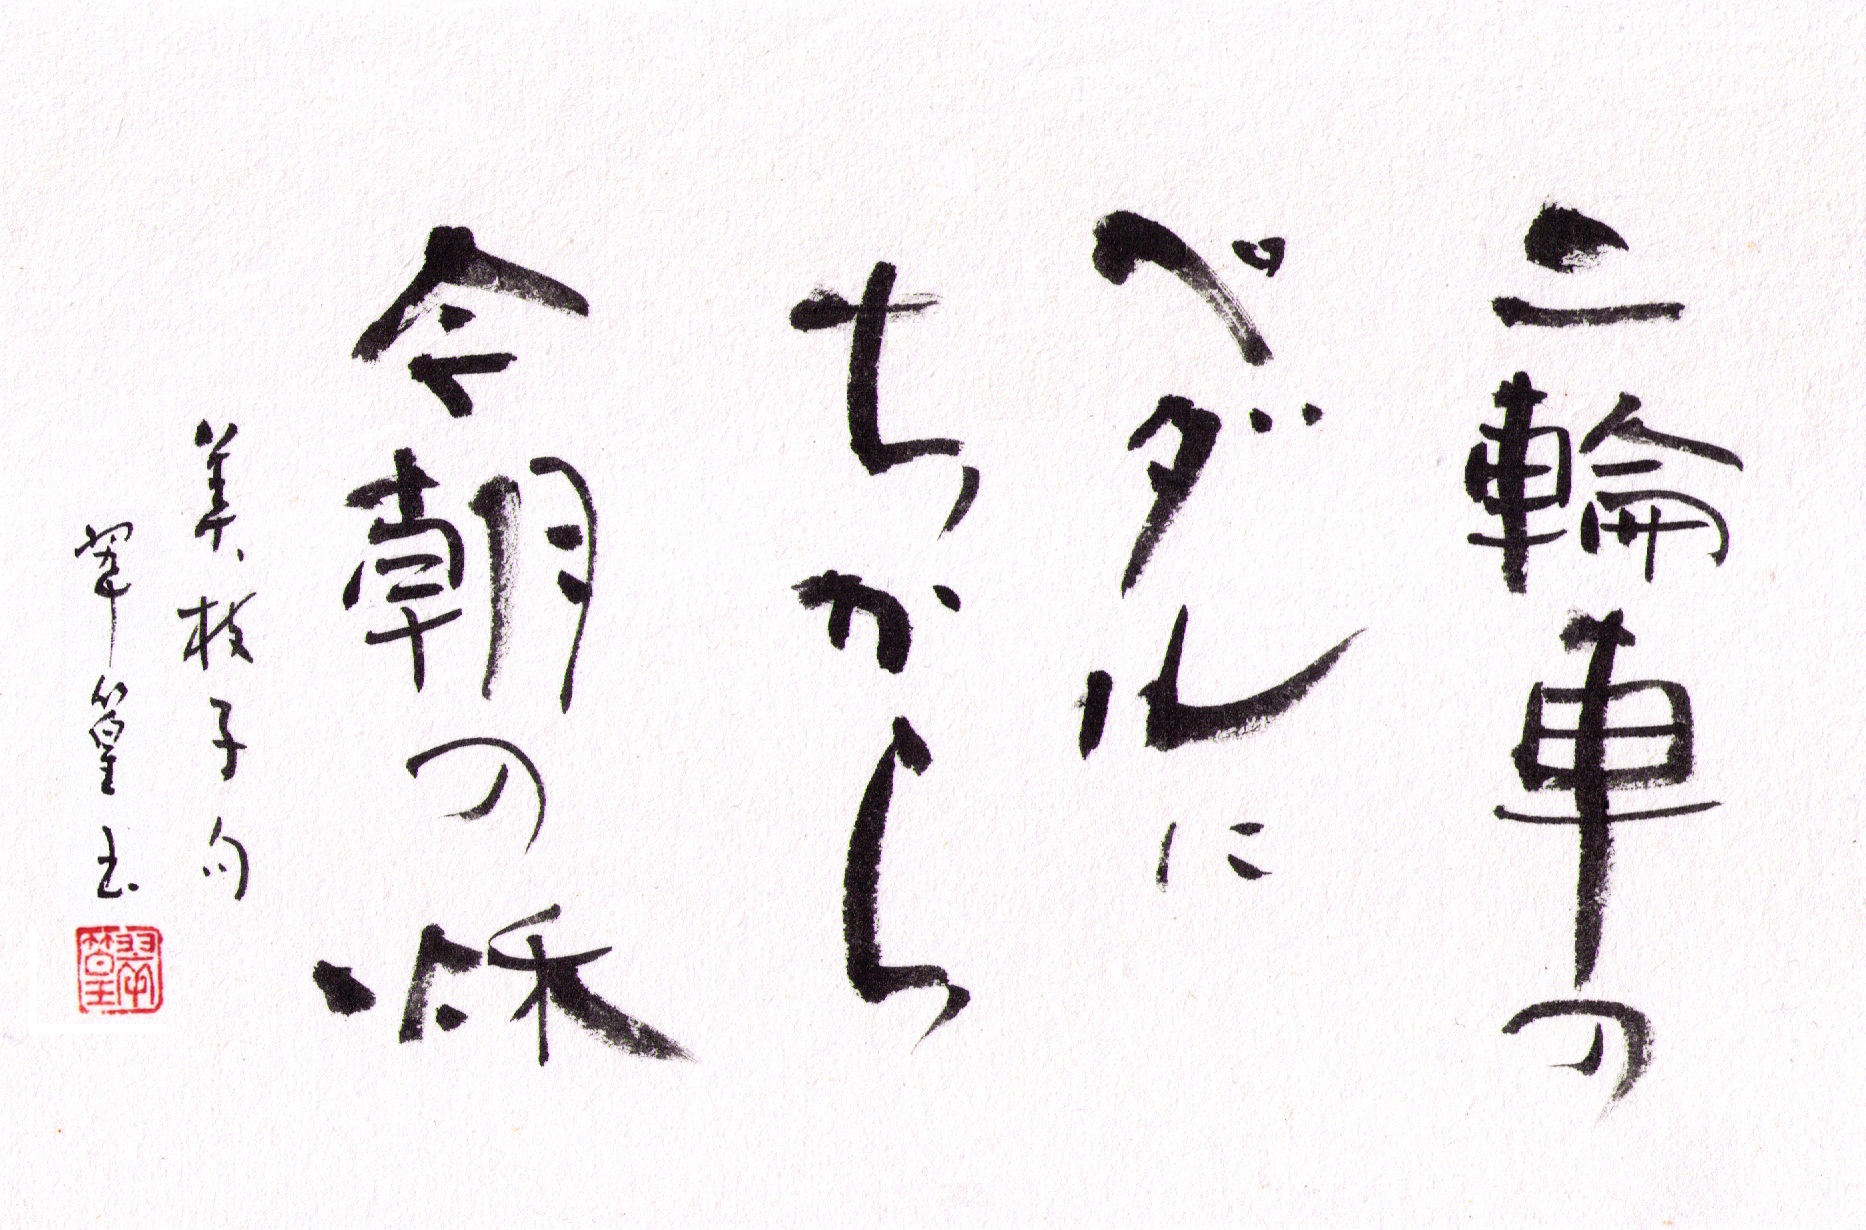 二輪車の
ペダルに
ちから
今朝の秌
美枝子句
翠篁書
翠篁